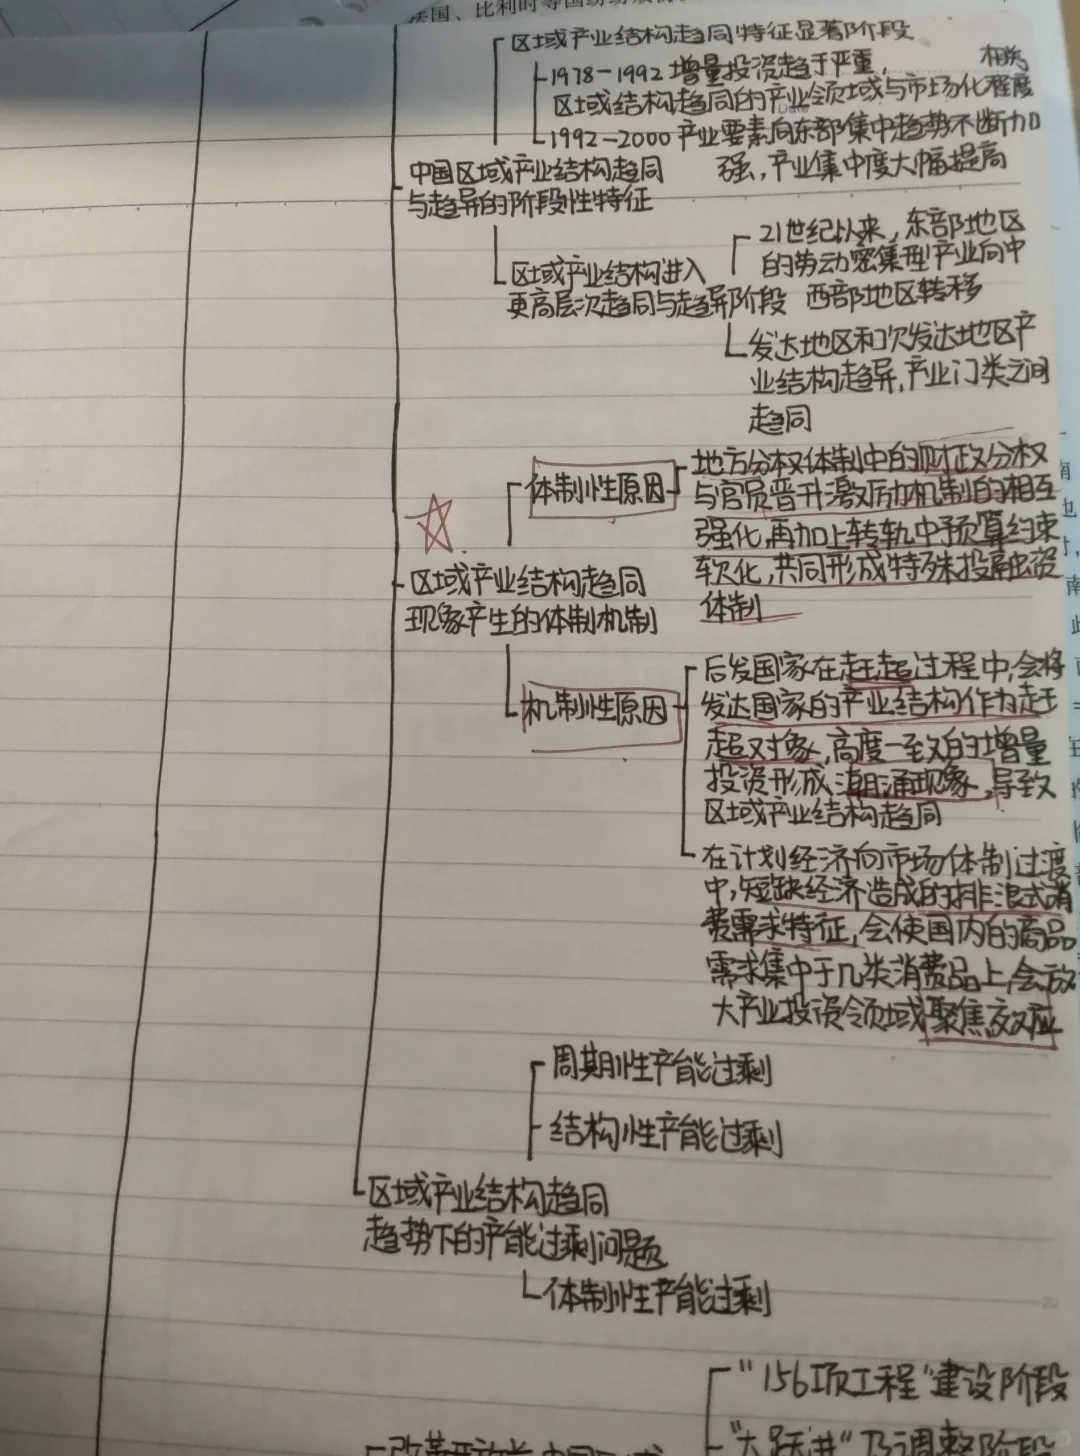 区域产业结构趋同特征显著阶段
1978-1992 增量投资趋于严重， 相关
区域结构趋同的产业领域与市场化程度
1992-2000 产业要素向东部集中趋势不断加
强，产业集中度大幅提高
中国区域产业结构趋同
与趋异的阶段性特征
21世纪以来，东部地区
的劳动密集型产业向中
西部地区转移
区域产业结构进入
更高层次趋同与趋异阶段
发达地区和欠发达地区产
业结构趋异，产业门类之间
趋同
体制性原因
地方分权体制中的财政分权
与官员晋升激励机制的相互
强化，再加上转轨中预算约束
软化，共同形成特殊投融资
体制
区域产业结构趋同
现象产生的体制机制
机制性原因
后发国家在赶超过程中，会将
发达国家的产业结构作为赶
超对象，高度一致的增量
投资形成潮涌现象，导致
区域产业结构趋同
在计划经济向市场体制过渡
中，短缺经济造成的排浪式消
费需求特征，会使国内的商品
需求集中于几类消费品上，会放
大产业投资领域聚焦效应
周期性产能过剩
结构性产能过剩
区域产业结构趋同
趋势下的产能过剩问题
体制性产能过剩
"156项工程"建设阶段
"大跃进"及调整阶段